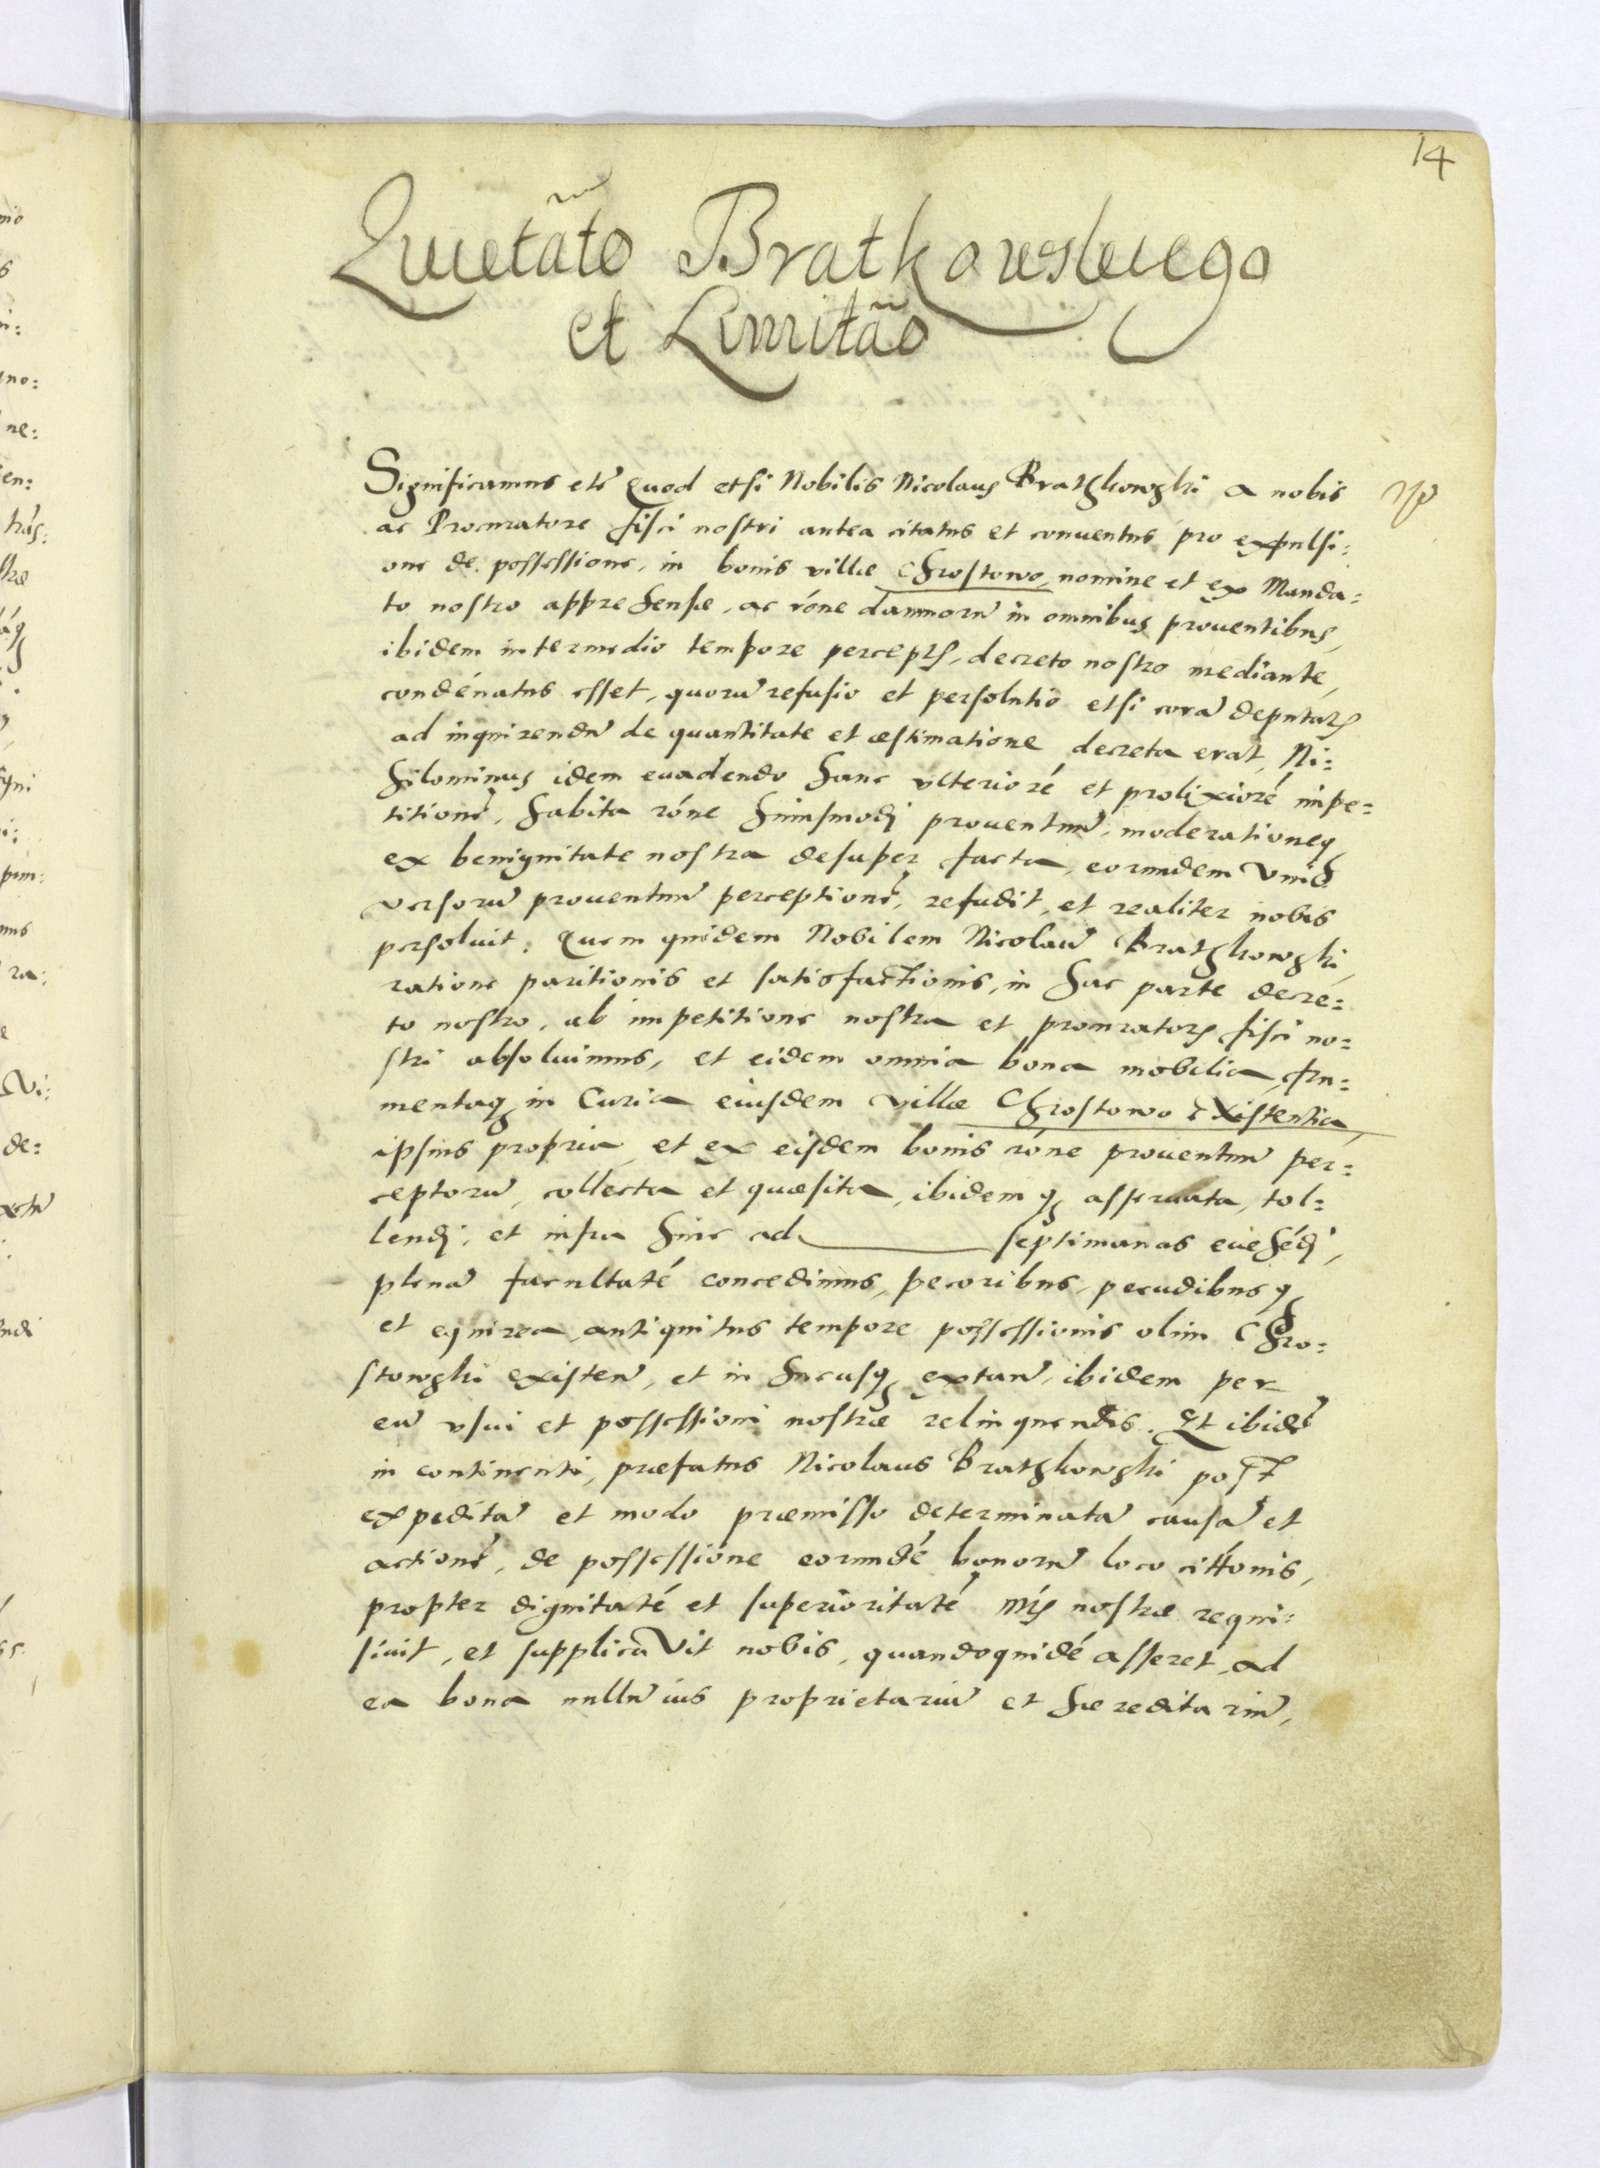 14
Quietatõ Bratkowskiego
et Limitaõ
Significamus etc̃ Quod etsi Nobilis Nicolaus Brathkowski a nobis
ac Procuratore fisci nostri antea citatus et conuentus pro expulsi:
one de possessione, in bonis villæ Chrostowo, nomine et ex Manda:
to nostro apprehensæ, ac rõne damnorũ in omnibus prouentibus,
ibidem intermedio tempore perceptis, decreto nostro mediante,
condẽnatus esset, quorũ refusio et persolutio etsi corã deputatis
ad inquirendũ de quantitate et æstimatione decreta erat, Ni:
hilominus idem euadendo hanc vlteriorẽ et prolixiorẽ impe=
titionẽ, habita rõne huiusmodi prouentuũ, moderationeq
ex benignitate nostra desuper facta, eorundem vni
versorũ prouentuũ perceptionẽ, refudit, et realiter nobis
persoluit. Quem quidem Nobilem Nicolaũ Brathkowski,
ratione paritionis et satisfactionis, in hac parte decre=
to nostro, ab impetitione nostra et procuratoris fisci no=
stri absoluimus, et eidem omnia bona mobilia, fru=
mentaq in Curia eiusdem villæ Chrostowo existentia,
ipsius propria et ex eisdem bonis rõne prouentuũ per=
ceptorũ, collecta et quæsita, ibidemq asseruata, tol=
lendi, et infra hinc ad septimanas euehẽdi,
plenã facultatẽ concedimus, pecoribus, pecudibusq
et equirea antiquitus tempore possessionis olim Chro=
stowski existeñ, et in hucusq extañ, ibidem per
eũ vsui et possessioni nostræ relinquendis. Et ibidẽ
in continenti, præfatus Nicolaus Brathkowski post
expeditã et modo præmisso determinatã causã et
actionẽ, de possessione eorundẽ bonorũ loco cittionis,
propter dignitatẽ et superioritatẽ Mtis nostræ requi=
siuit, et supplicavit nobis, quandoquidẽ asseret, ad
ea bona nullũ ius proprietariũ et hæreditariũ,